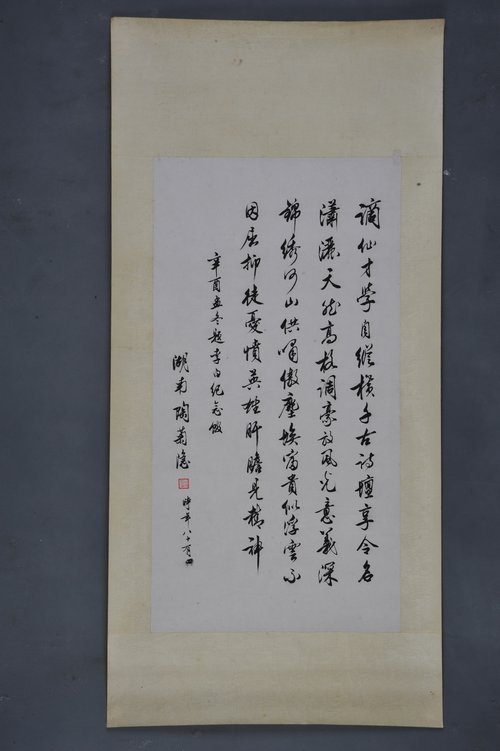 谪仙才學自縱橫千古詩壇享令名
瀟灑天然高格調豪放風光意義深
錦绣河山供嘯傲塵埃富貴似浮雲不
因屈抑徒憂憤英雄肝膽見精神
辛酉孟冬題李白紀念館
湖南陶菊隱
時年八十有四